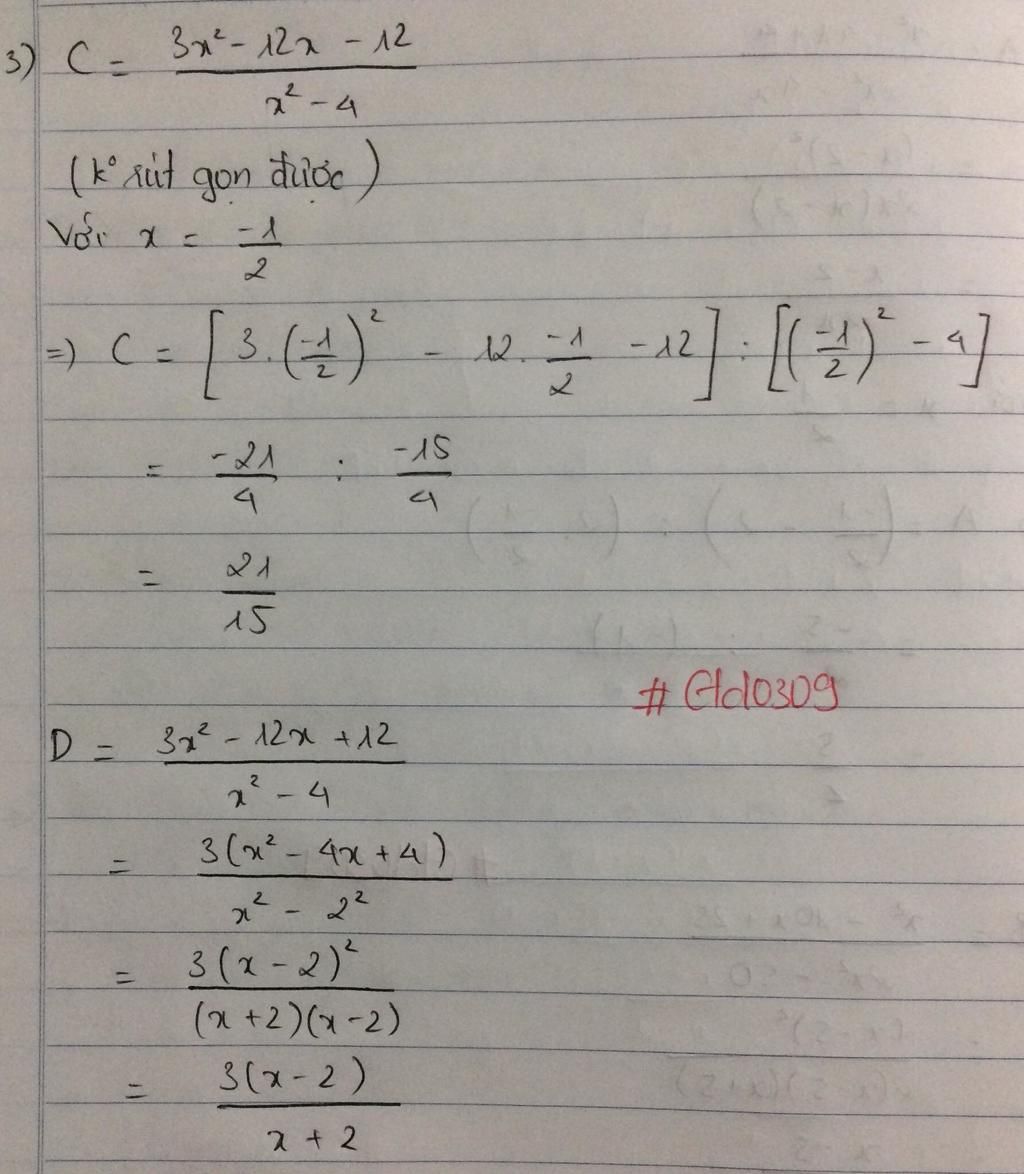 3) C = \frac{3x² - 12x - 12}{x² - 4}
(k° rút gọn được)
Với x = \frac{-1}{2}
=) C = [3.(\frac{-1}{2})² - 12.\frac{-1}{2} - 12] : [(\frac{-1}{2})² - 4]
= \frac{-21}{4} : \frac{-15}{4}
= \frac{21}{15}
D = \frac{3x² - 12x + 12}{x² - 4}
= \frac{3(x² - 4x + 4)}{x² - 2²}
= \frac{3(x - 2)²}{(x + 2)(x - 2)}
= \frac{3(x - 2)}{x + 2}